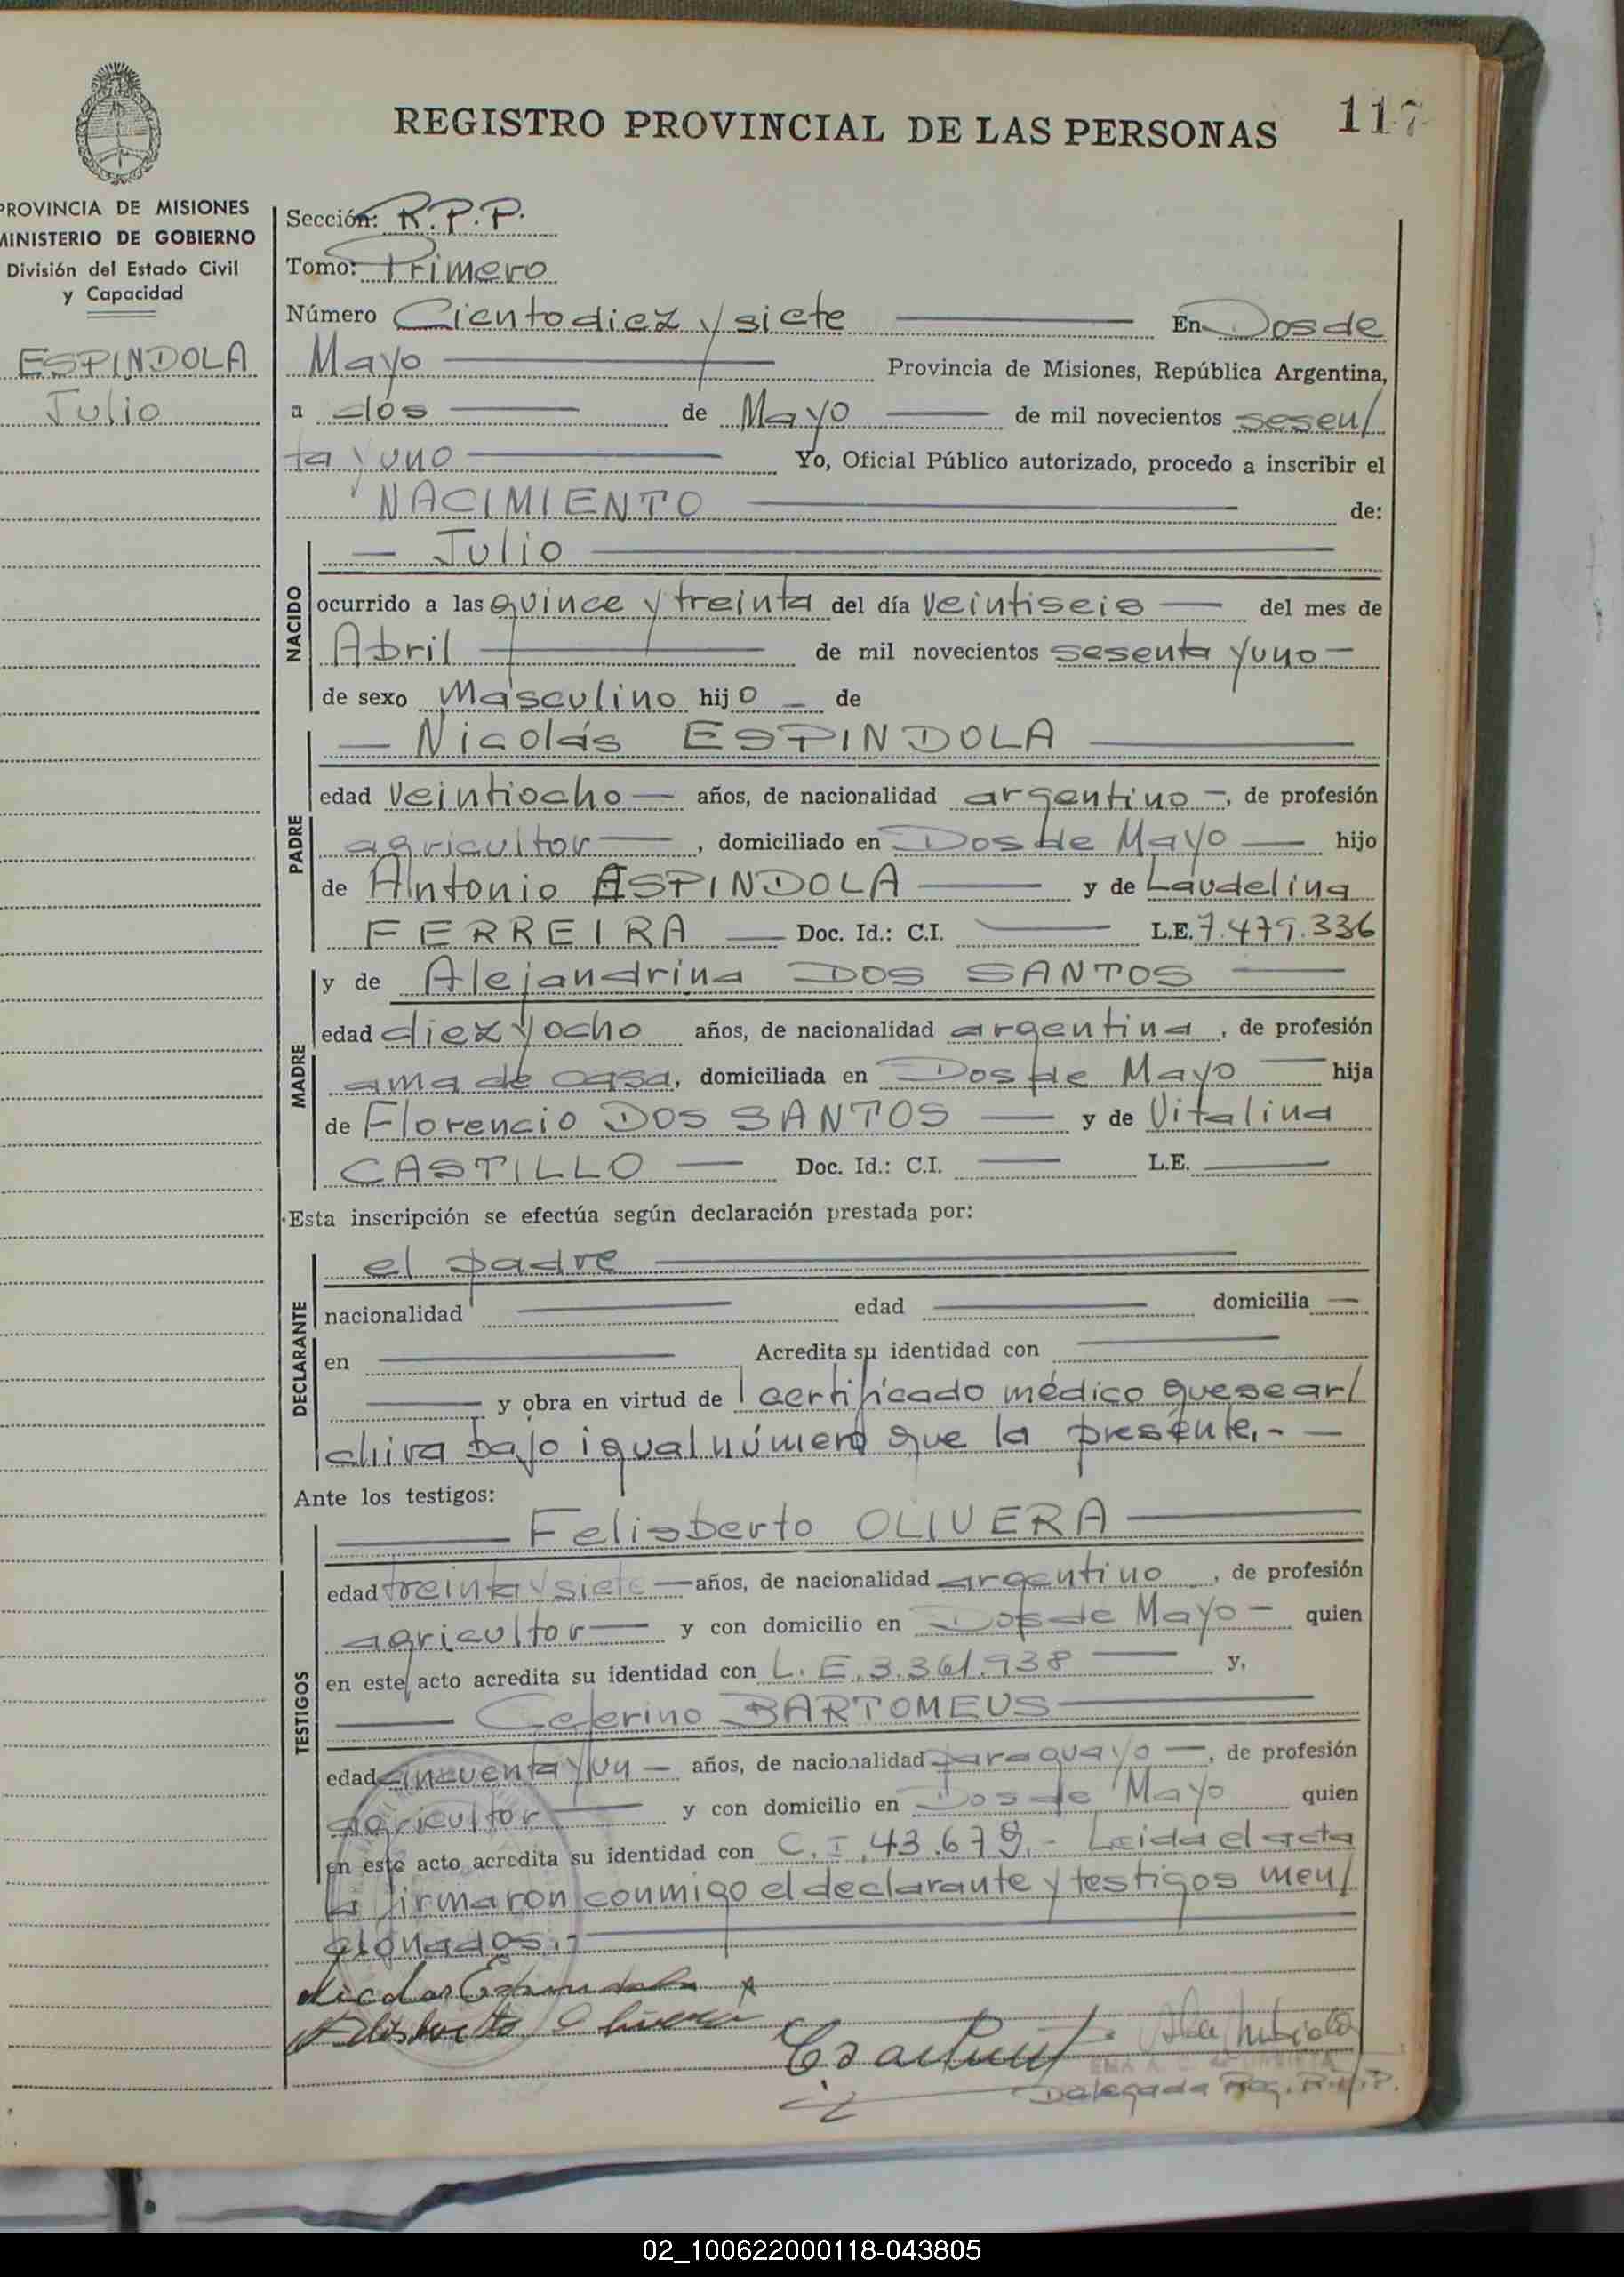 REGISTRO PROVINCIAL DE LAS PERSONAS
117
PROVINCIA DE MISIONES
MINISTERIO DE GOBIERNO
División del Estado Civil
y Capacidad
ESPINDOLA
Julio
Sección: R.P.P.
Tomo: Primero
Número Ciento diez y siete En Dos de
Mayo Provincia de Misiones, República Argentina,
a dos de Mayo de mil novecientos sesen/
ta y uno Yo, Oficial Público autorizado, procedo a inscribir el
NACIMIENTO de:
NACIDO
Julio
ocurrido a las quince y treinta del día veintiseis del mes de
Abril de mil novecientos sesenta y uno
de sexo Masculino hijo de
PADRE
Nicolás ESPINDOLA
edad veintiocho años, de nacionalidad argentino, de profesión
agricultor, domiciliado en Dos de Mayo hijo
de Antonio ESPINDOLA y de Laudelina
FERREIRA Doc. Id.: C.I. L.E. 7.479.336
MADRE
y de Alejandrina DOS SANTOS
edad diez y ocho años, de nacionalidad argentina, de profesión
ama de casa, domiciliada en Dos de Mayo hija
de Florencio DOS SANTOS y de Vitalina
CASTILLO Doc. Id.: C.I. L.E.
Esta inscripción se efectúa según declaración prestada por:
DECLARANTE
el padre
nacionalidad edad domicilia
en Acredita su identidad con
y obra en virtud de certificado médico que se ar/
chiva bajo igual número que la presente.-
Ante los testigos:
TESTIGOS
Felisberto OLIVERA
edad treinta y siete años, de nacionalidad argentino, de profesión
agricultor y con domicilio en Dos de Mayo quien
en este acto acredita su identidad con L.E. 3.361.938 y,
Ceferino BARTOMEUS
edad cincuenta y un años, de nacionalidad paraguayo, de profesión
agricultor y con domicilio en Dos de Mayo quien
en este acto acredita su identidad con C.I. 43.679.- Leida el acta
la firmaron conmigo el declarante y testigos men/
cionados.-
Nicolas Espindola
Felisberto Olivera
Delegada Reg. R.P.P.
02_100622000118-043805